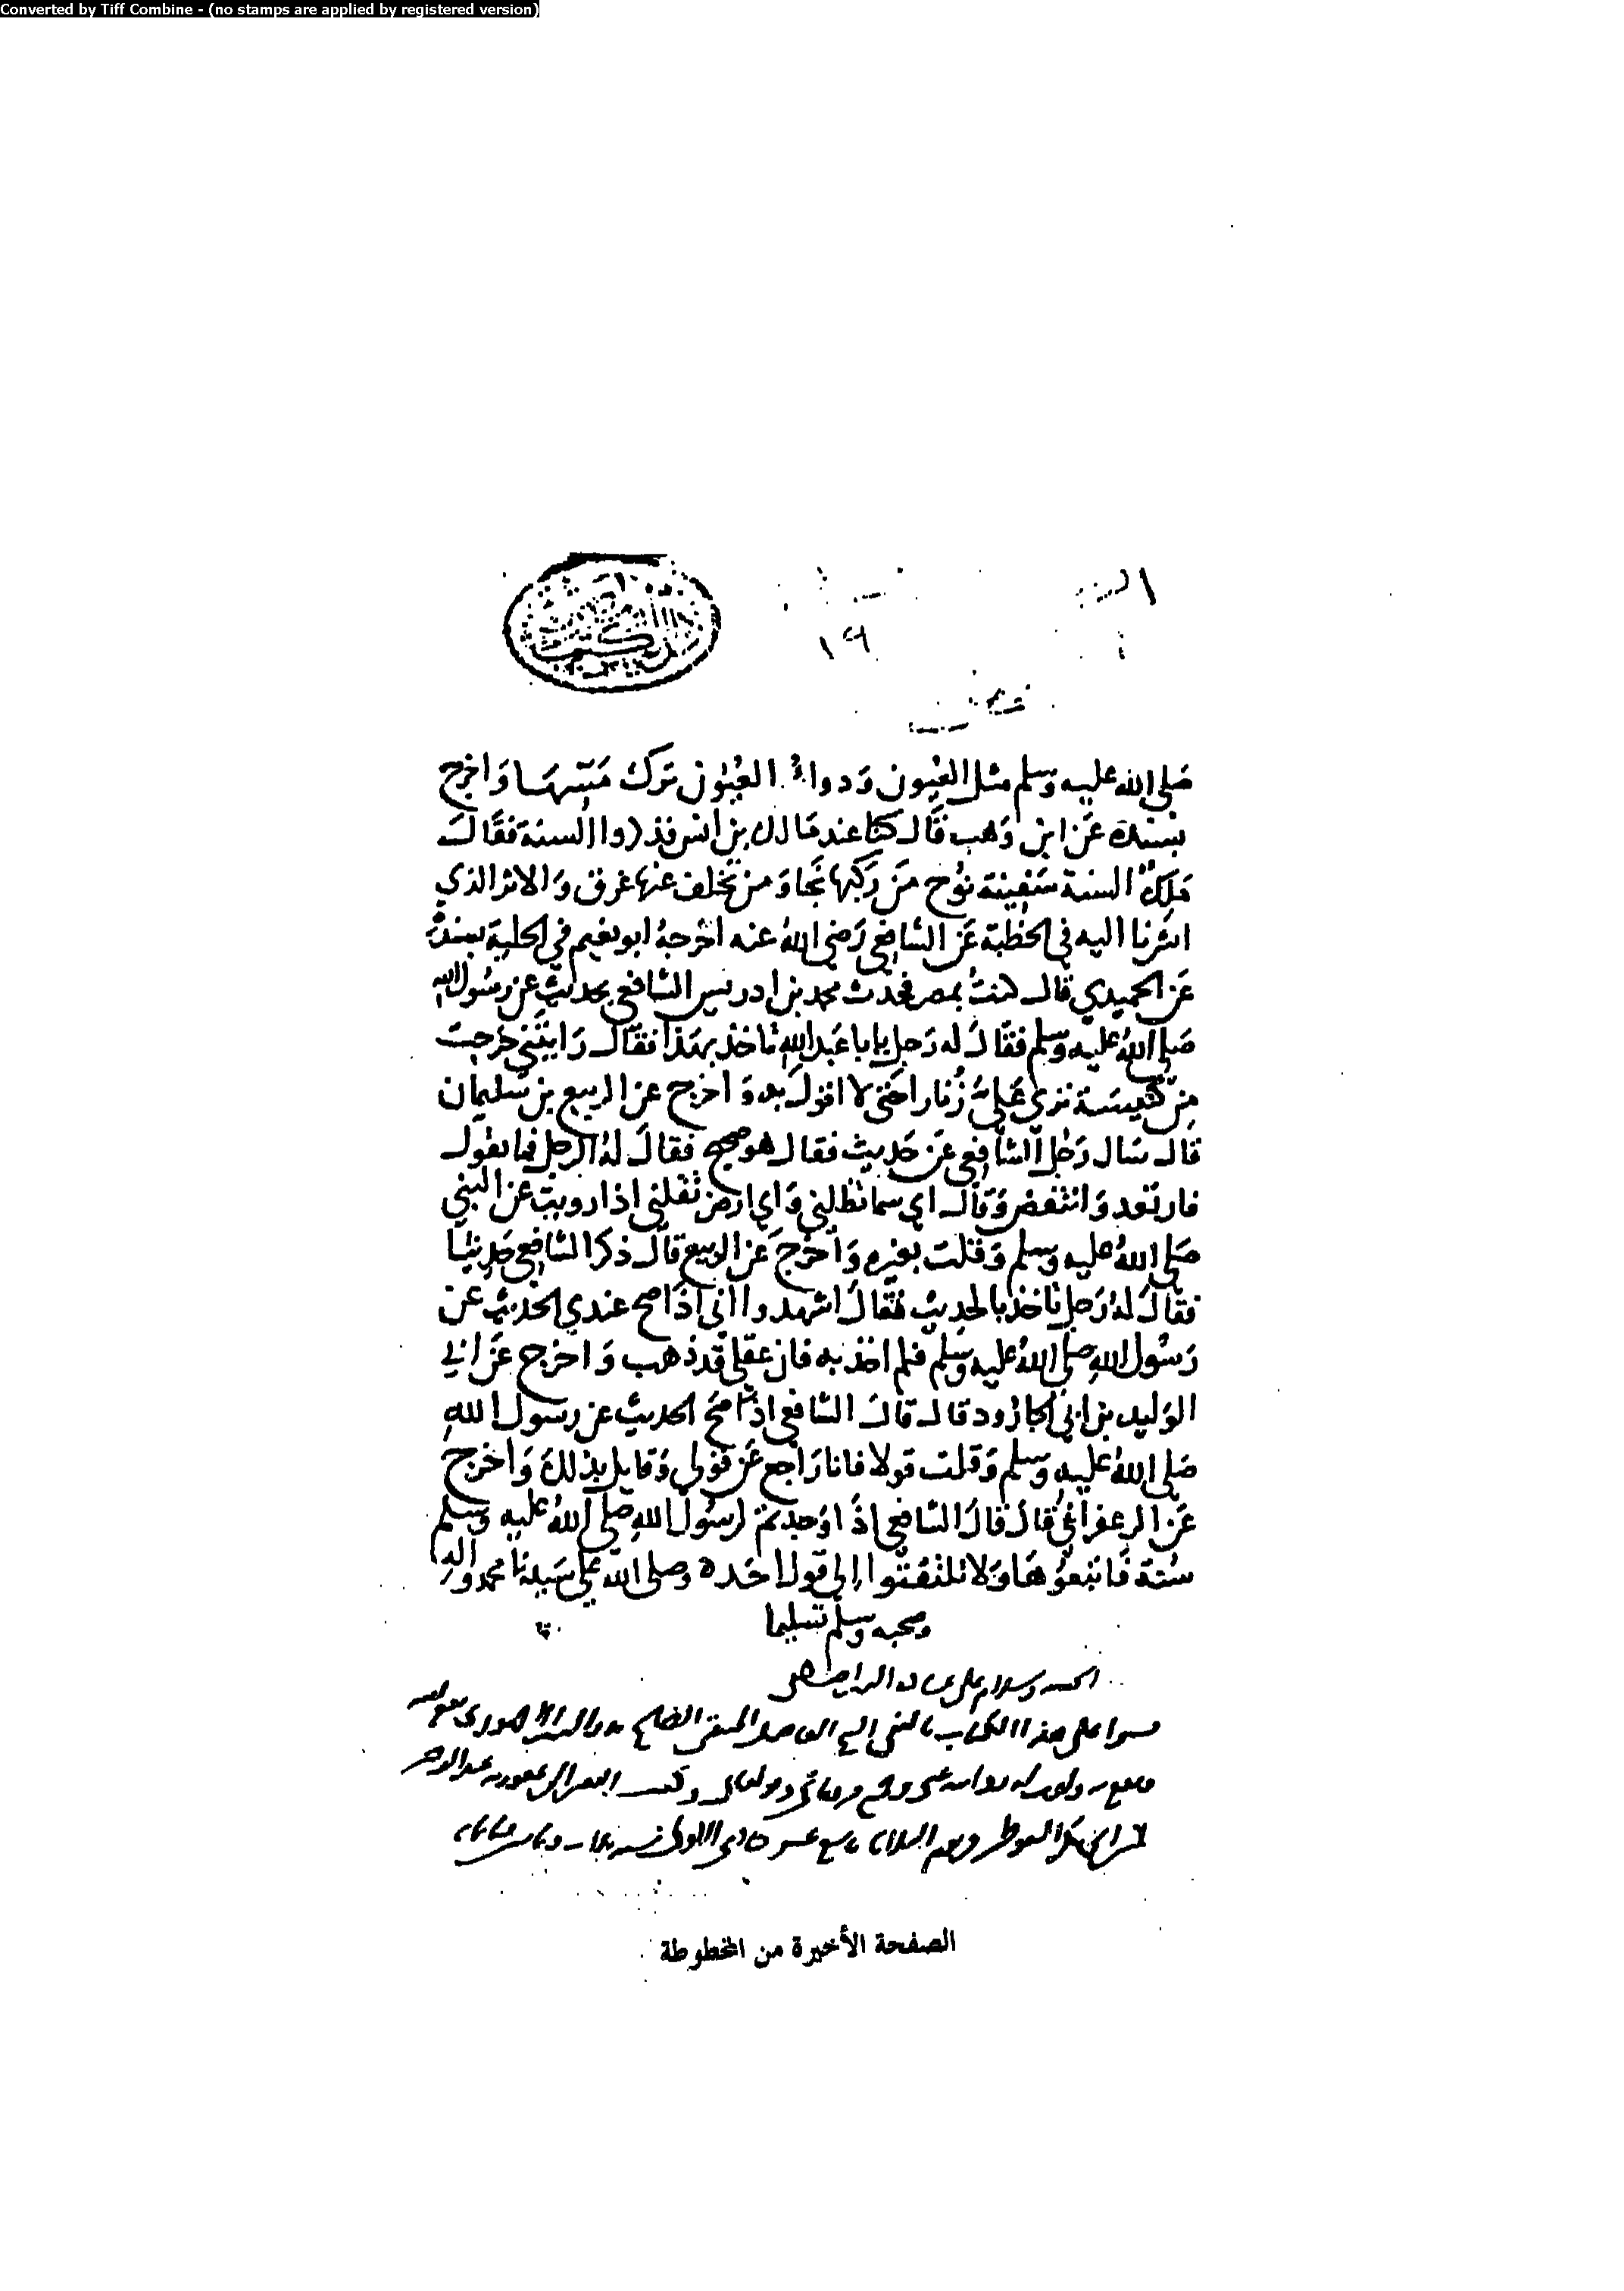 Converted by Tiff Combine - (no stamps are applied by registered version)
١٩
صَلى الله عليه وسلم مثل العيون وَدواءُ العيُون تركَ مَسّهَا وَاخرج
بسنده عَن ابن وَهب قال كنا عند مَالك بن انس فذكروا السنة فقال
مَلكٌ السنة سَفينة نوُح مَن رَكبها نجا وَمن تخلف عنها غرق وَالاثر الذي
اشرنا اليه في الخطبة عَن الشافعي رَضي اللهُ عنه اخرجهُ ابو نعيم في الحلية بسندهُ
عَن الحميدي قال كنتُ بمصر فحدث محمد بن ادريس الشافعي بحديث عن رسُول الله
صَلى اللهُ عليه وَسلم فقالَ له رَجل يابا عَبد الله تاخذ بهَذا فقال رَايتَني خرجت
من كنيسَة تري عَليَّ زُنارا حَتى لا اقول به وَاخرج عن الربيع بن سُليمان
قال سَال رَجُل الشافعي عَن حَديث فقال هو صحيح فقالَ لهُ الرجل فما تقول
فارتعد وَانتفض وَقال اي سما تظلني وَاي ارض تقلني اذا رويت عن النبي
صَلى اللهُ عليه وسلم وَقلت بغيره وَاخرجَ عَن الربيع قال ذكر الشافعي حَديثا
فقالَ لهُ رَجل تاخذ بالحديث فقالَ اشهدوا اني اذا صح عندي الحديث عن
رَسُول الله صلى اللهُ عليه وَسَلم فلم اخذ به فان عقلي قد ذهب وَاخرج عَن ابي
الوَليد بن ابي الجارُود قال قالَ الشافعي اذا صَحَ الحديث عن رسول الله
صَلى اللهُ عليه وَسلم وَقلت قولا فانا رَاجع عَن قولي وَقايل بذلكَ وَاخرج
عَن الزعفراني قالَ قالَ الشافعي اذَا وَجدتم لرسُول الله صَلى اللهُ عليه وَسلم
سُنة فَاتبعوُهَا وَلا تلتفتوا الى قول احَده وصلى الله على سَيدنا محمد وَاله
وصحبه وسلم تسليما
الحمد وسلام على عباده الذين اصطفى
هذا الكتاب
الصفحة الأخيرة من المخطوطة